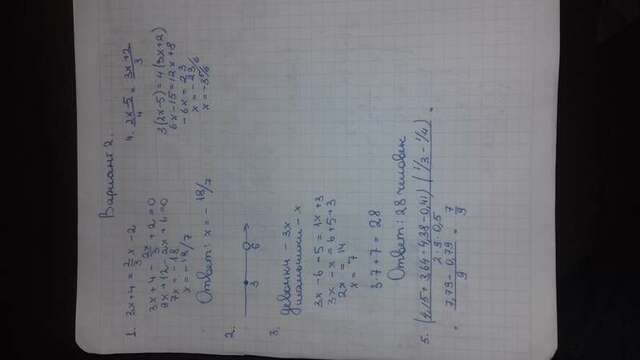 Вариант 2.
1. 3x+4 = 2/3 x - 2
3x+4 - 2x/3 + 2 = 0
9x+12-2x+6=0
7x = -18
x = -18/7
Ответ: x = - 18/7
2.
3 6
3.
девочки - 3x
мальчики - x
3x - 6 - 5 = 1x + 3
3x - x = 6+5+3
2x = 14
x = 7
3·7+7 = 28
Ответ: 28 человек
4. 2x-5/4 = 3x+2/3
3(2x-5) = 4(3x+2)
6x-15=12x+8
-6x = 23
x = -23/6
x = -3 5/6
5. (4,15+3,64-4,38-0,41) (1/3-1/4) =
2·9·0,5
= 7,79-0,79/9 = 7/9